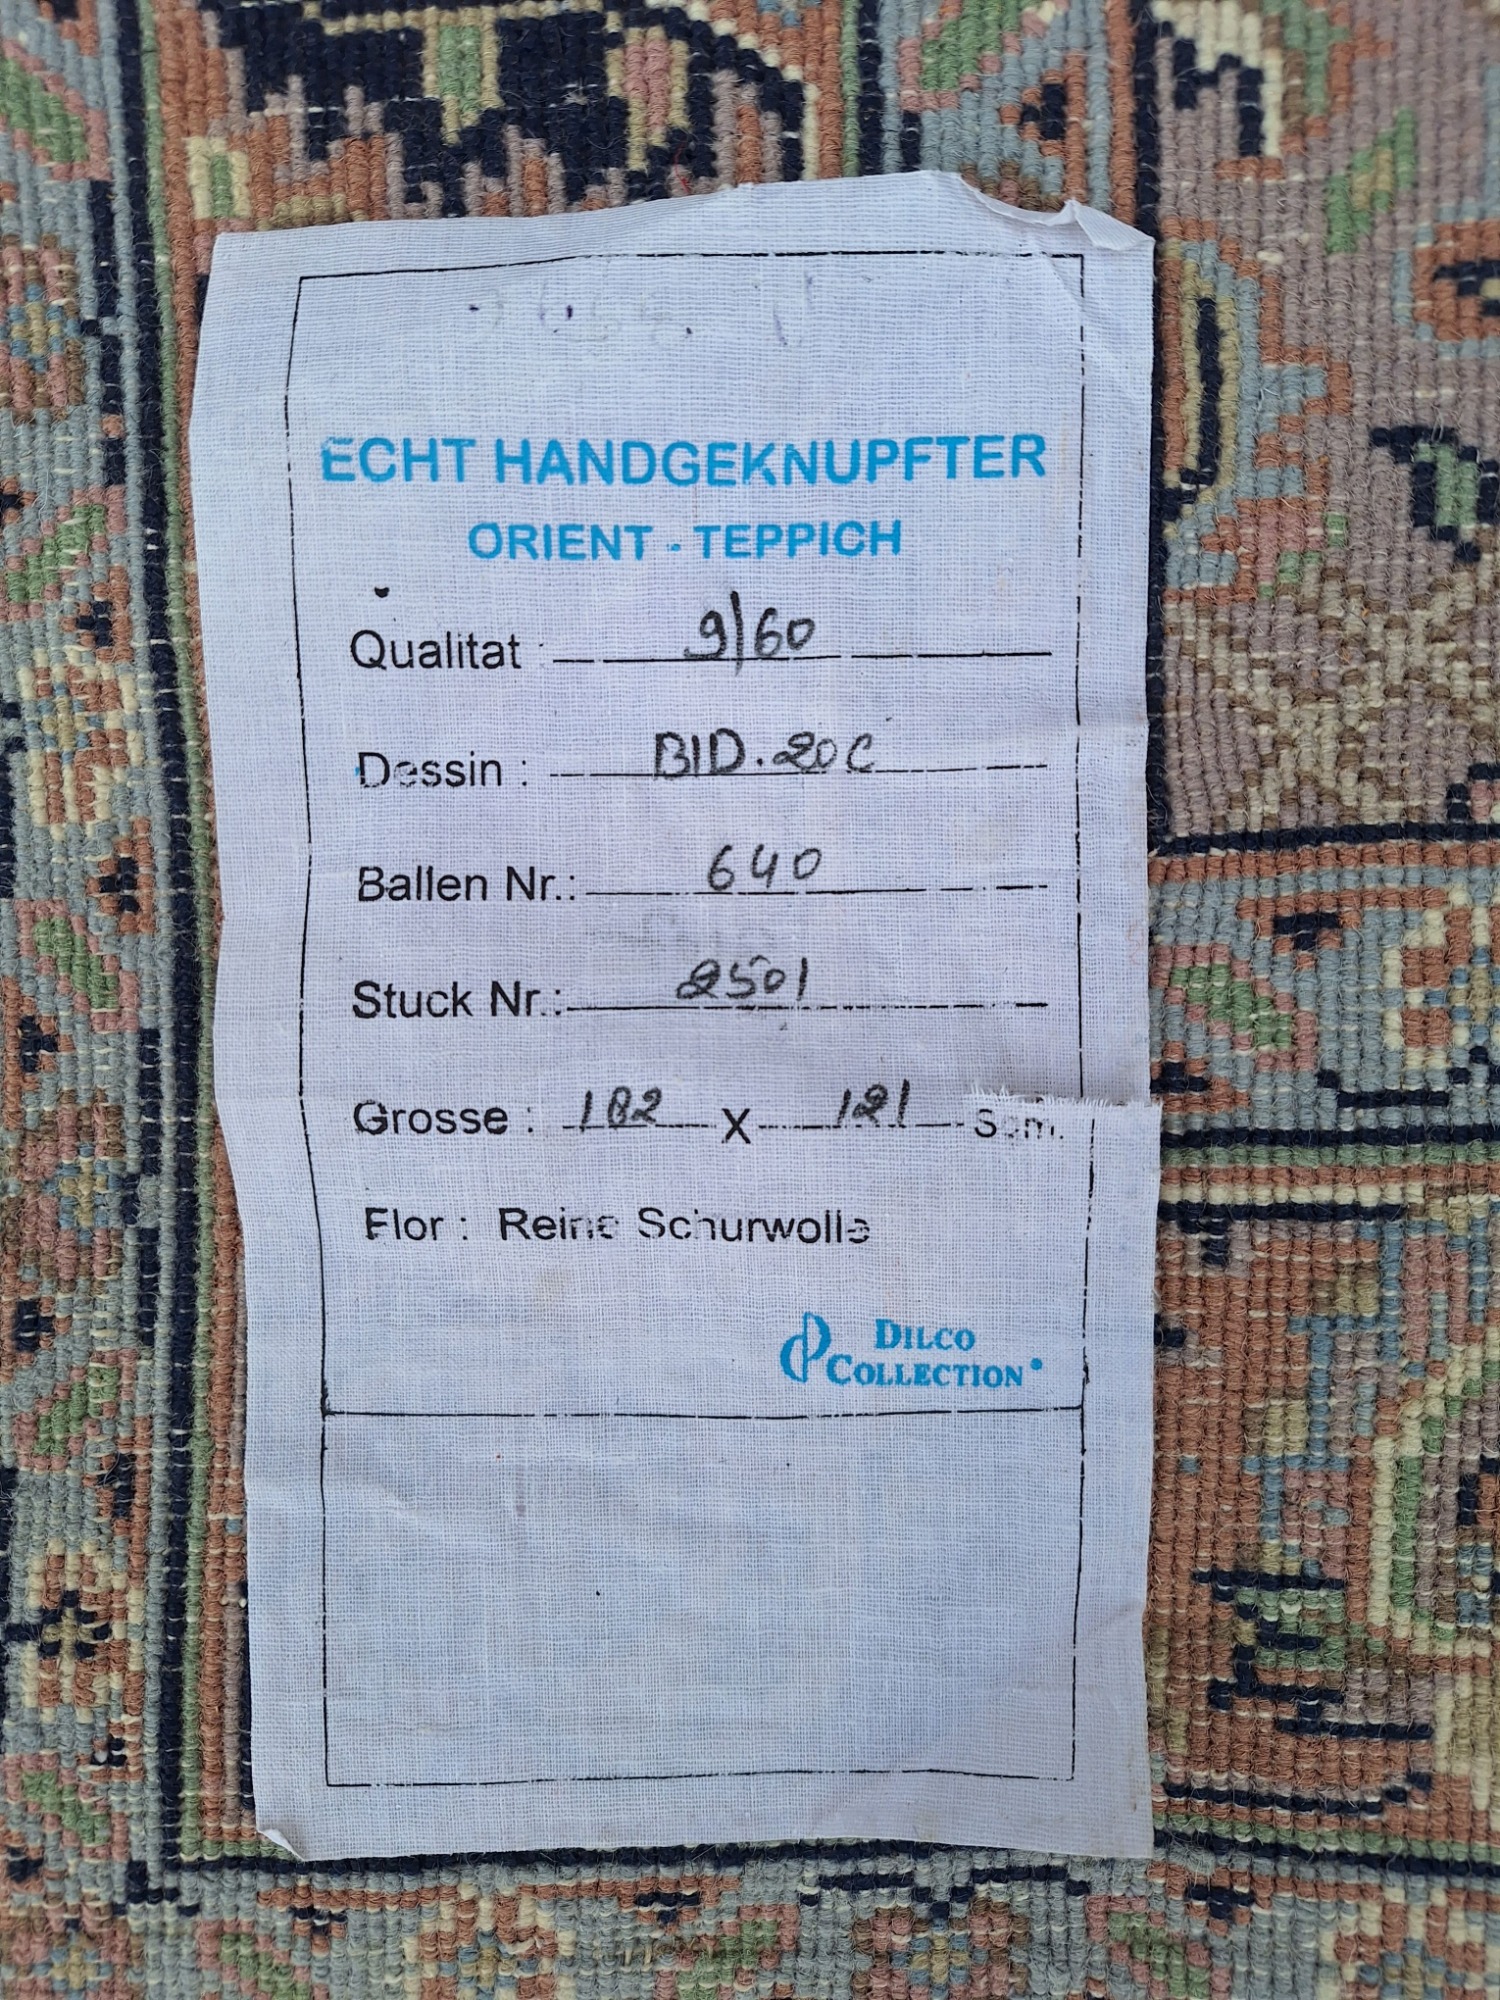 ECHT HANDGEKNUPFTER
ORIENT - TEPPICH
Qualitat : 9/60
Dessin : BID.20C
Ballen Nr.: 640
Stuck Nr.: 2501
Grosse : 182 X 121 Scm.
Flor : Reine Schurwolle
DILCO
COLLECTION